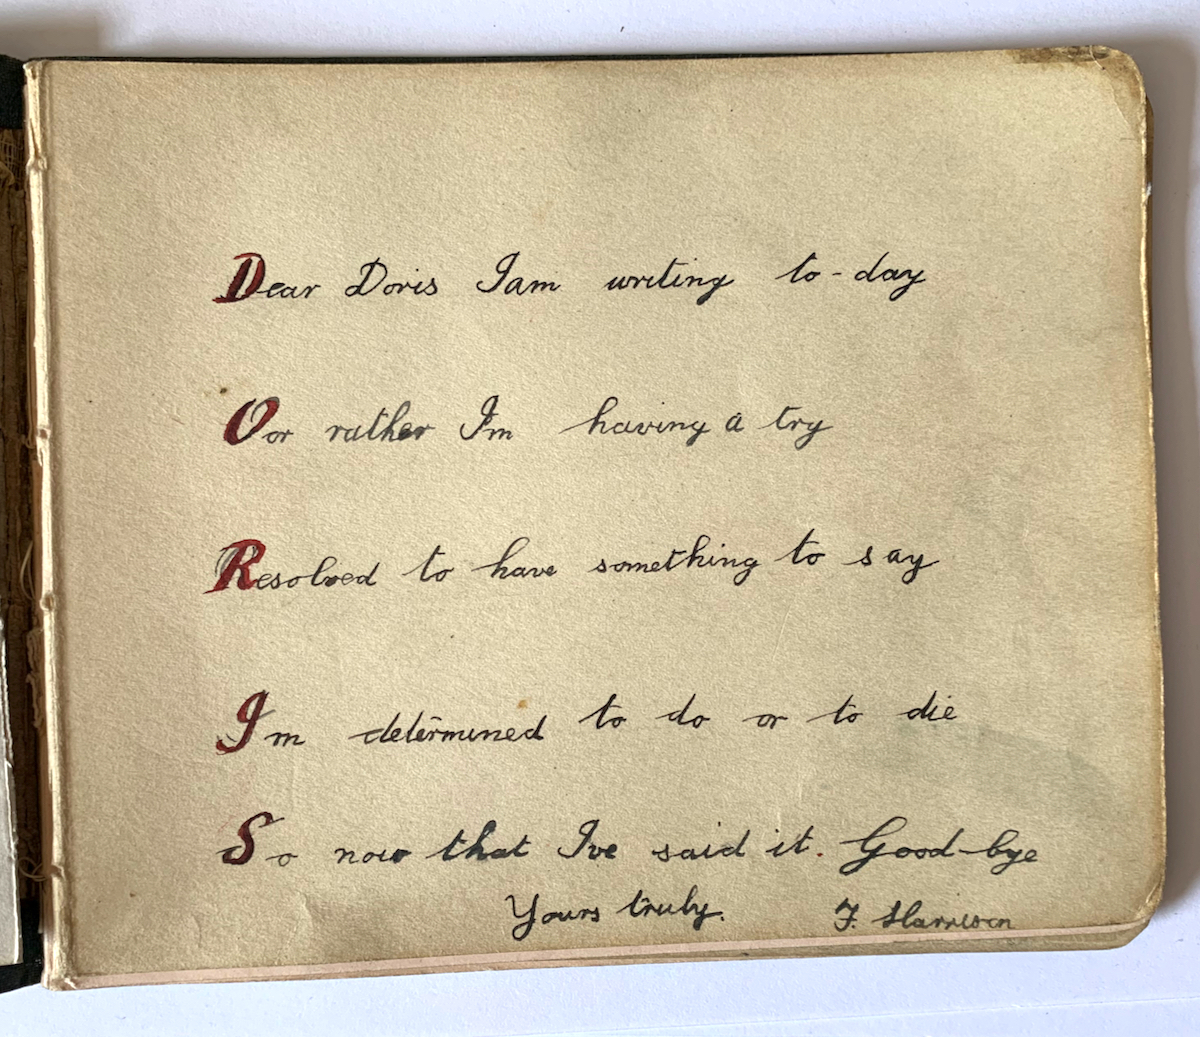 Dear Doris I am writing to-day
Oor rather Im having a try
Resolved to have something to say
Im determined to do or to die
So now that Ive said it. Good-bye
Yours truly. F. Harrison